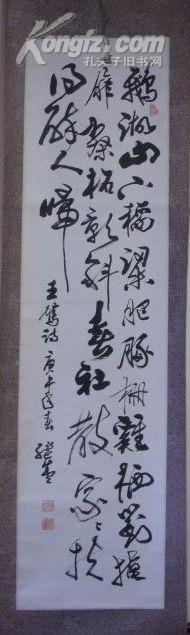 鵝湖山下稻粱肥豚柵雞棲對掩
扉桑柘影斜春社散家〻扶
得醉人歸
王駕詩 庚午年春
Kongfz.com
孔夫子旧书网